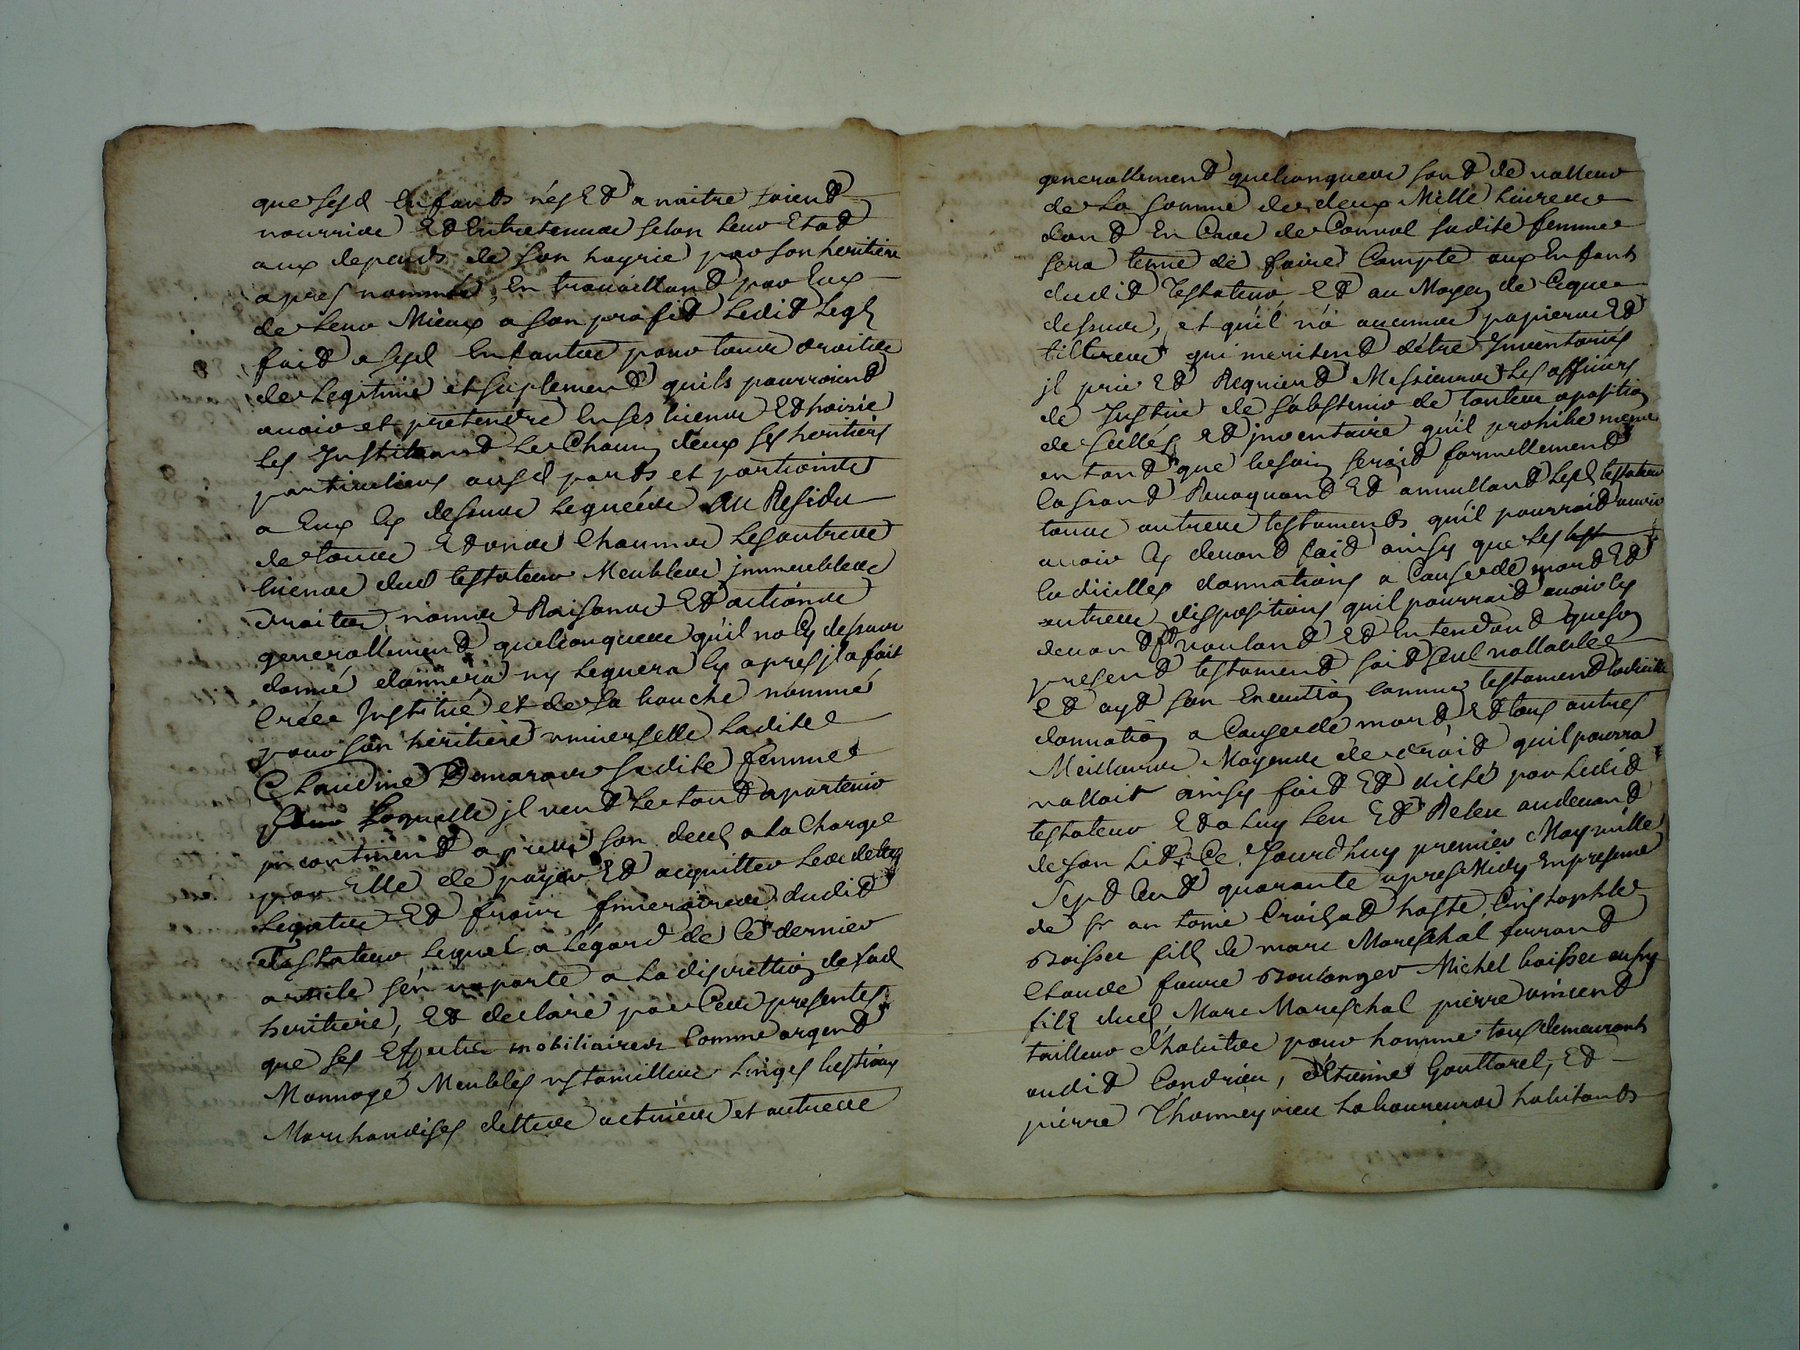 que sesd Enfants nés Et a naitre soient
nourris Et Entretenus selon leur Etat
aux depends de son hoyrie par son heritiere
apres nommée, En travaillant par Eux
de leur Mieux a son profit Ledit Legs
fait a sesd Enfants pour tous droits
de Legitime et suplement quils pourroient
avoir et pretendre En ses biens Et hoirie
Les Instituant Le Chacun deux ses heritiers
particuliers ausd parts et portions
a Eux cy dessus Leguées Au Residu
de tous Et uns Chacuns Les autres
biens dud testateur Meubles jmmeubles
droits noms Raisons Et actions
generallement quelconques qu'il na cy dessus
donné donnera ny Leguera cy apres jl a fait
Créée Institué et de sa bouche nommé
pour son heritiere universelle Ladite
Claudine Demarous sadite femme
a Laquelle jl veut Le tout apartenir
jncontinent apres son deced a la Charge
par Elle de payer Et acquitter Les dettes
Legats Et fraix funeraires dudit
Testateur Lequel a Légard de Ce dernier
article sén raporte a la discrettion de sad
heritiere, Et declare par Ces presentes
que ses Effects mobiliaires Comme argent
Monnoyé Meubles ustancilles Linges bestiaux
Marchandises dettes actives et autres
generallement quelconques sont de valleur
de La somme de deux Mille Livres
dont En Cas de Convol sadite femme
sera tenue de faire Compte aux Enfants
dudit Testateur Et au Moyen de Ceque
dessus, et qu'il n'a aucuns papiers Et
tiltres qui meritent détre Inventoriés
jl prie Et Requiert Messieurs Les officiers
de Justice de s'abstenir de toutes aposition
de scellés Et jnventaire qu'il prohibe meme
en tant que besoin seroit formellement
Cassant Revoquant Et annullant Led testateur
tous autres testaments qu'il pourroit avoir
avoir cy devant fait ainsy que Les
Codicilles donnations a Cause de mort Et
autres dispositions quil pourroit avoir cy
devant voulant Et Entendant que son
present testament soit seul vallable
Et ayt son Execution Comme testament Codicille
donnation a Cause de mort Et tous autres
Meilleurs Moyens de droit qu'il pourra
valloir ainsy fait Et dicté par Ledit
testateur Et a Luy Leu Et Releu audevant
de son Lit Ce Jourdhuy premier May mille
sept Cent quarante apres Midy En presence
de sr antoine Croisat hoste Cristophle
Boissec fils de marc Mareschal ferrant
Claude faure Boulanger Michel boissec aussy
fils dud Marc Mareschal pierre vincent
tailleur d'habits pour homme tous demeurants
audit Condrieu, étienne Gouttarel, Et
pierre Thomeyrieu Laboureurs habitants